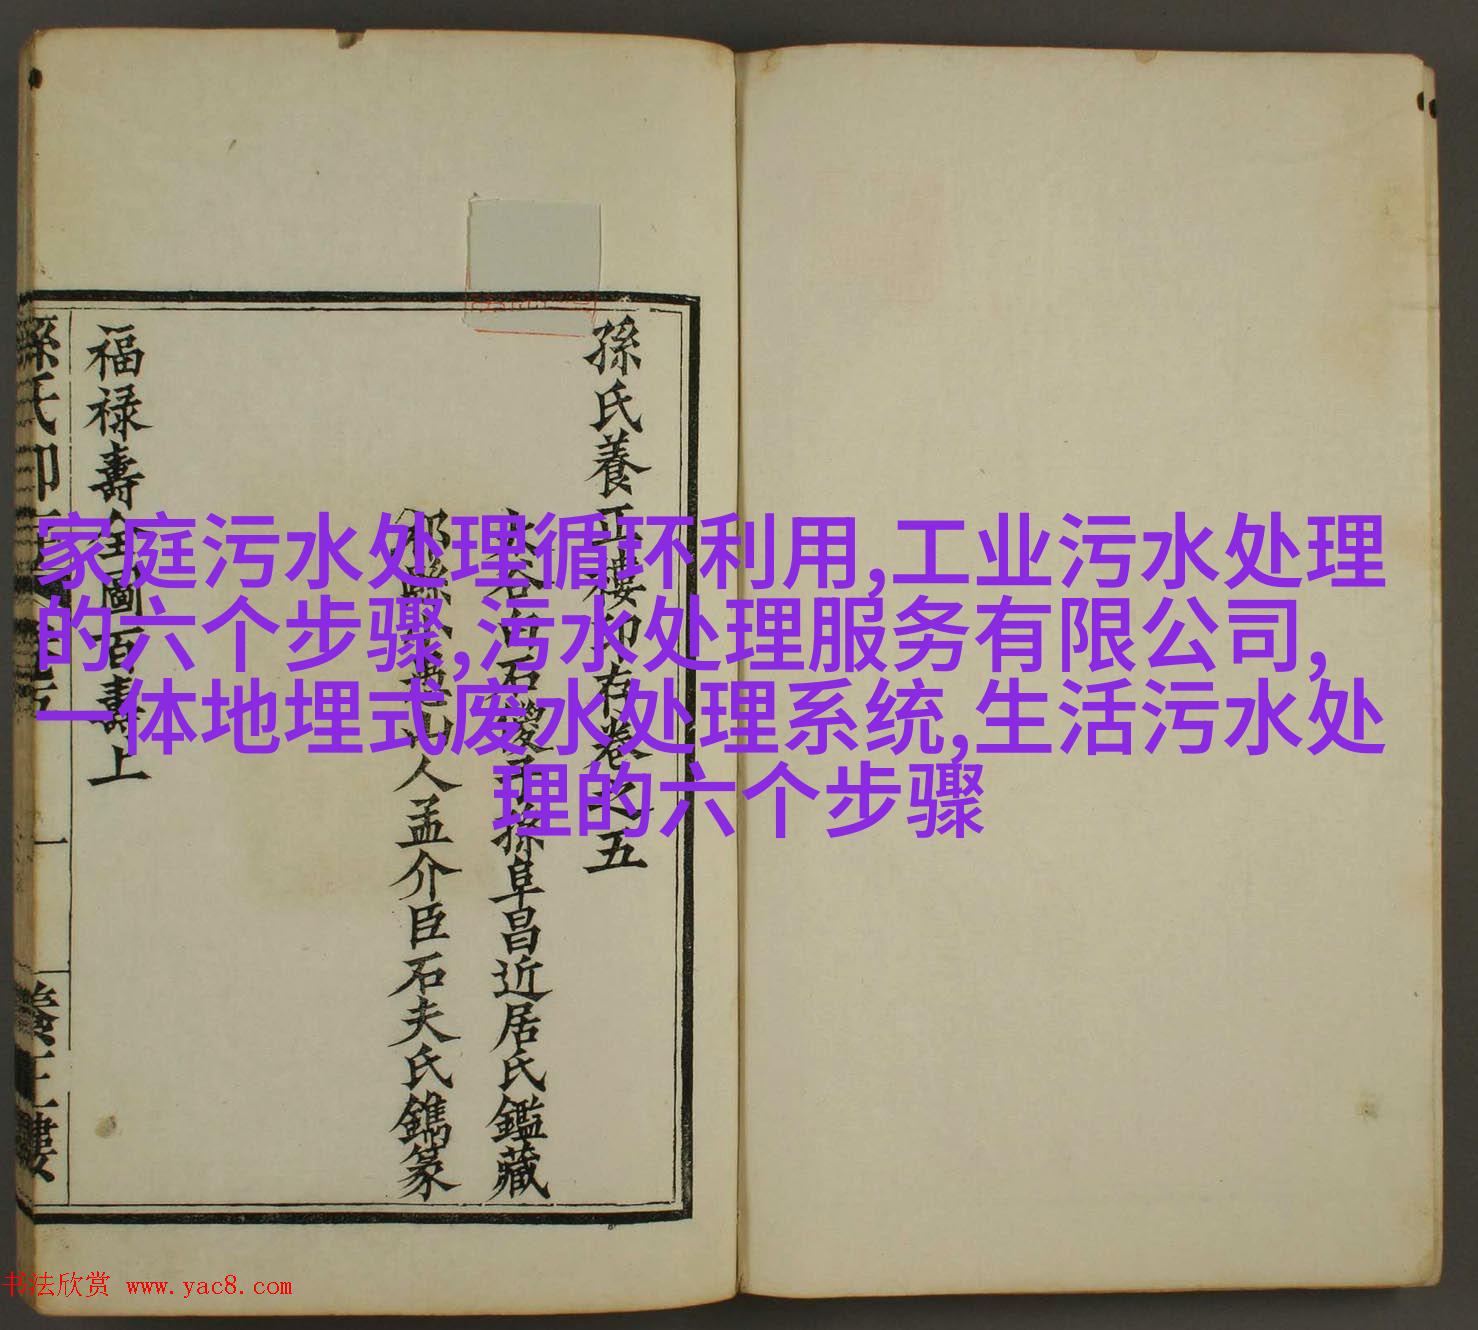 家庭污水处理循环利用,工业污水处理
的六个步骤,污水处理服务有限公司,
一体地埋式废水处理系统,生活污水处
理的六个步骤
孫氏養正樓印存卷之五
石夔孫阜昌近居氏鑑藏
山人孟介臣石夫氏鐫篆
福禄壽全圖百壽上
孫氏印
養正樓
书法欣赏 www.yac8.com